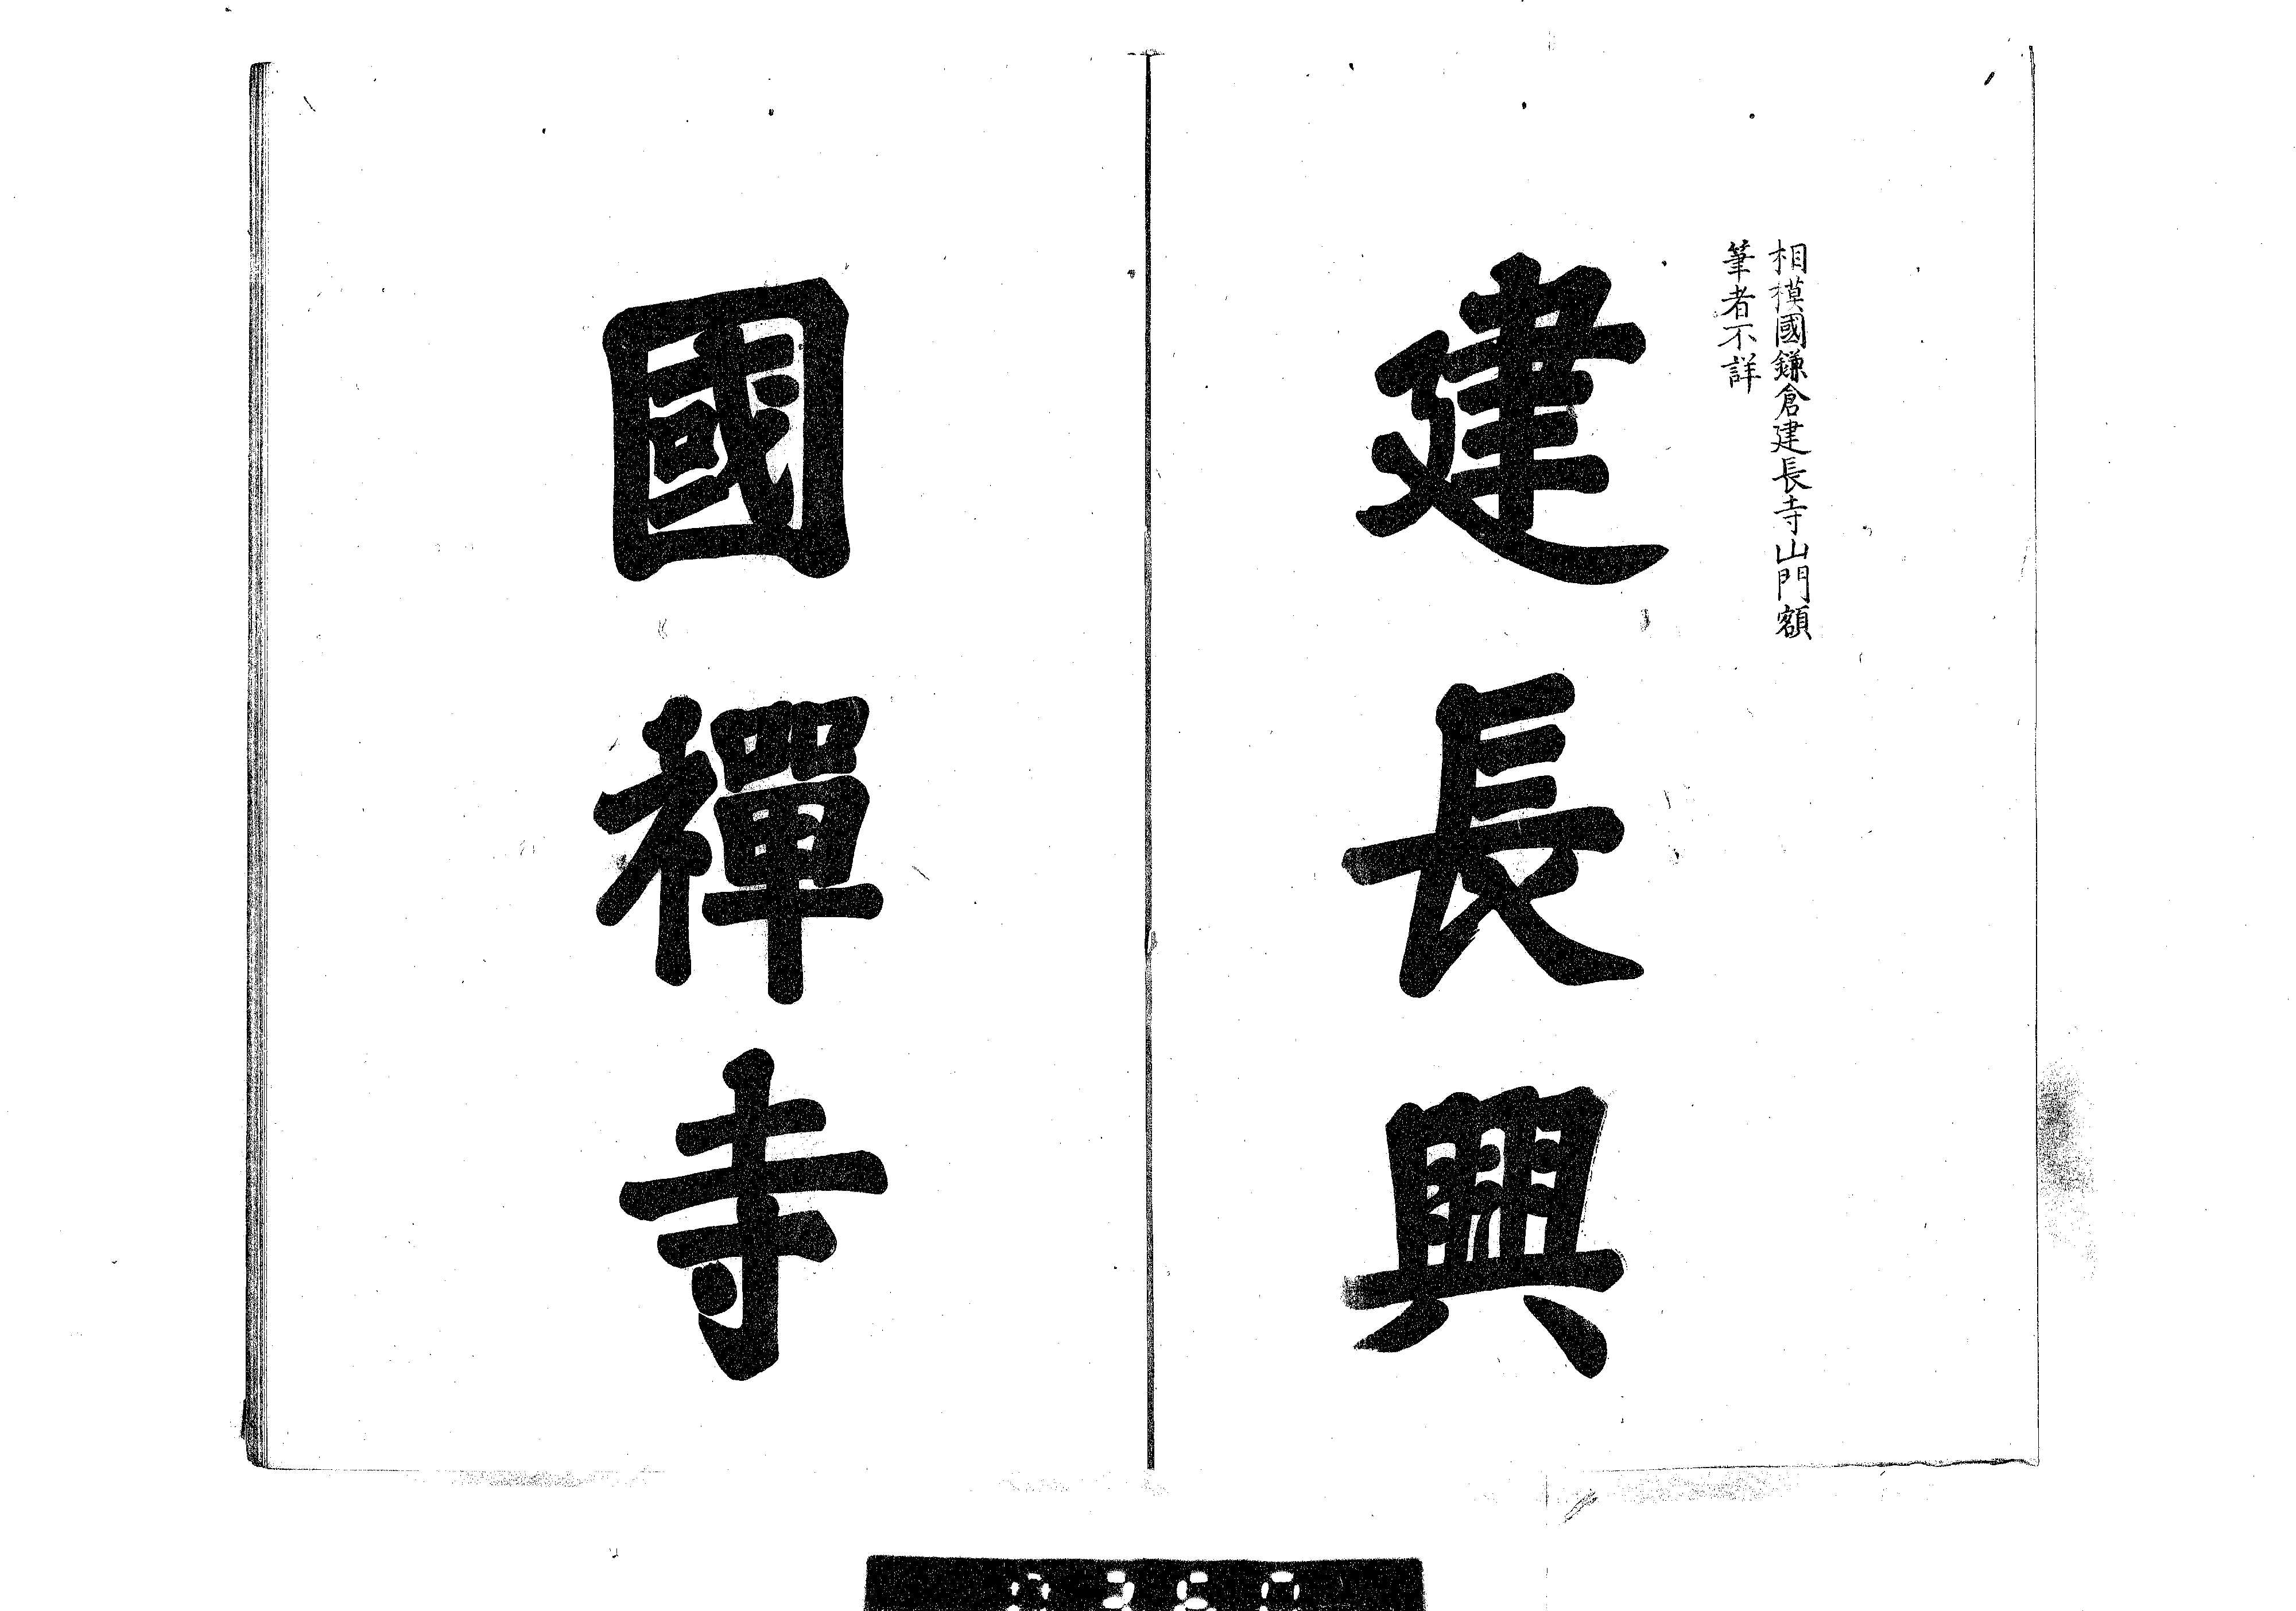 相模國鎌倉建長寺山門額
筆者不詳
建長興
國禪寺